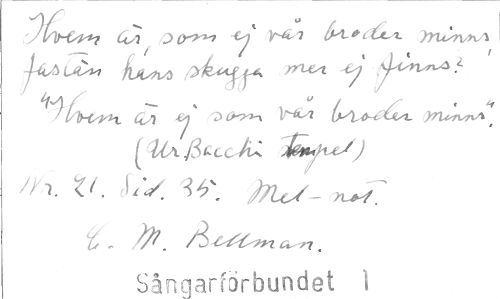 Hvem är, som ej vår broder minns,
fastän hans skugga mer ej finns?
"Hvem är ej som vår broder minns".
(Ur, Bacchi tempel)
Nr. 21. Sid. 35. Mel-not.
C. M. Bellman.
Sångarförbundet 1